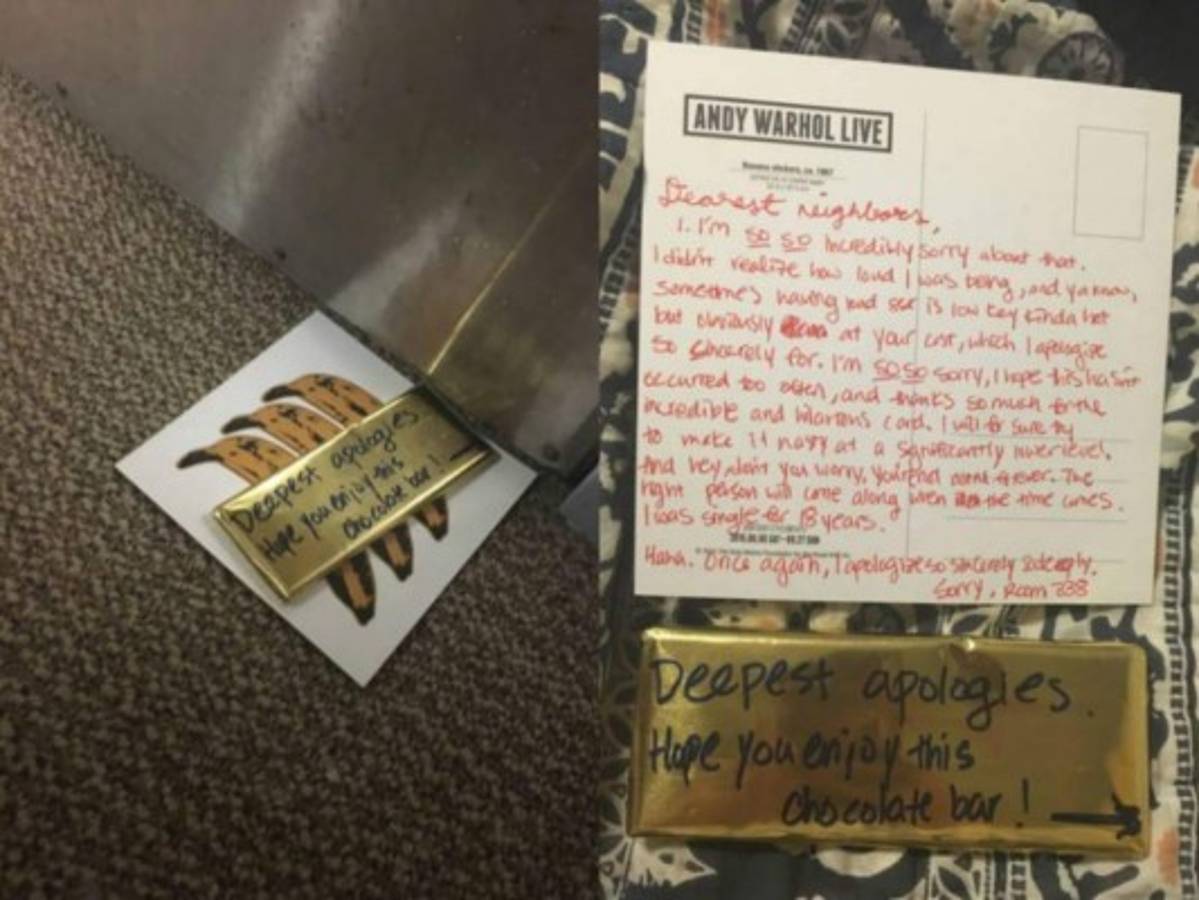 Deepest apologies
Hope you enjoy this
chocolate bar!
ANDY WARHOL LIVE
Banana stickers, ca. 1967
Dearest neighbors,
1. I'm so so incredibly sorry about that.
I didn't realize how loud I was being, and ya know,
sometimes having loud sex is low key kinda hot
but obviously at your cost, which I apologize
so sincerely for. I'm so so sorry, I hope this hasn't
occurred too often, and thanks so much for the
incredible and hilarious card. I will for sure try
to make it nasty at a significantly lower level.
And hey don't you worry, you'll find some forever. The
right person will come along when the time comes.
I was single for 18 years.
Haha. Once again, I apologize so sincerely & deeply.
Sorry, Room 338
Deepest apologies.
Hope you enjoy this
chocolate bar!